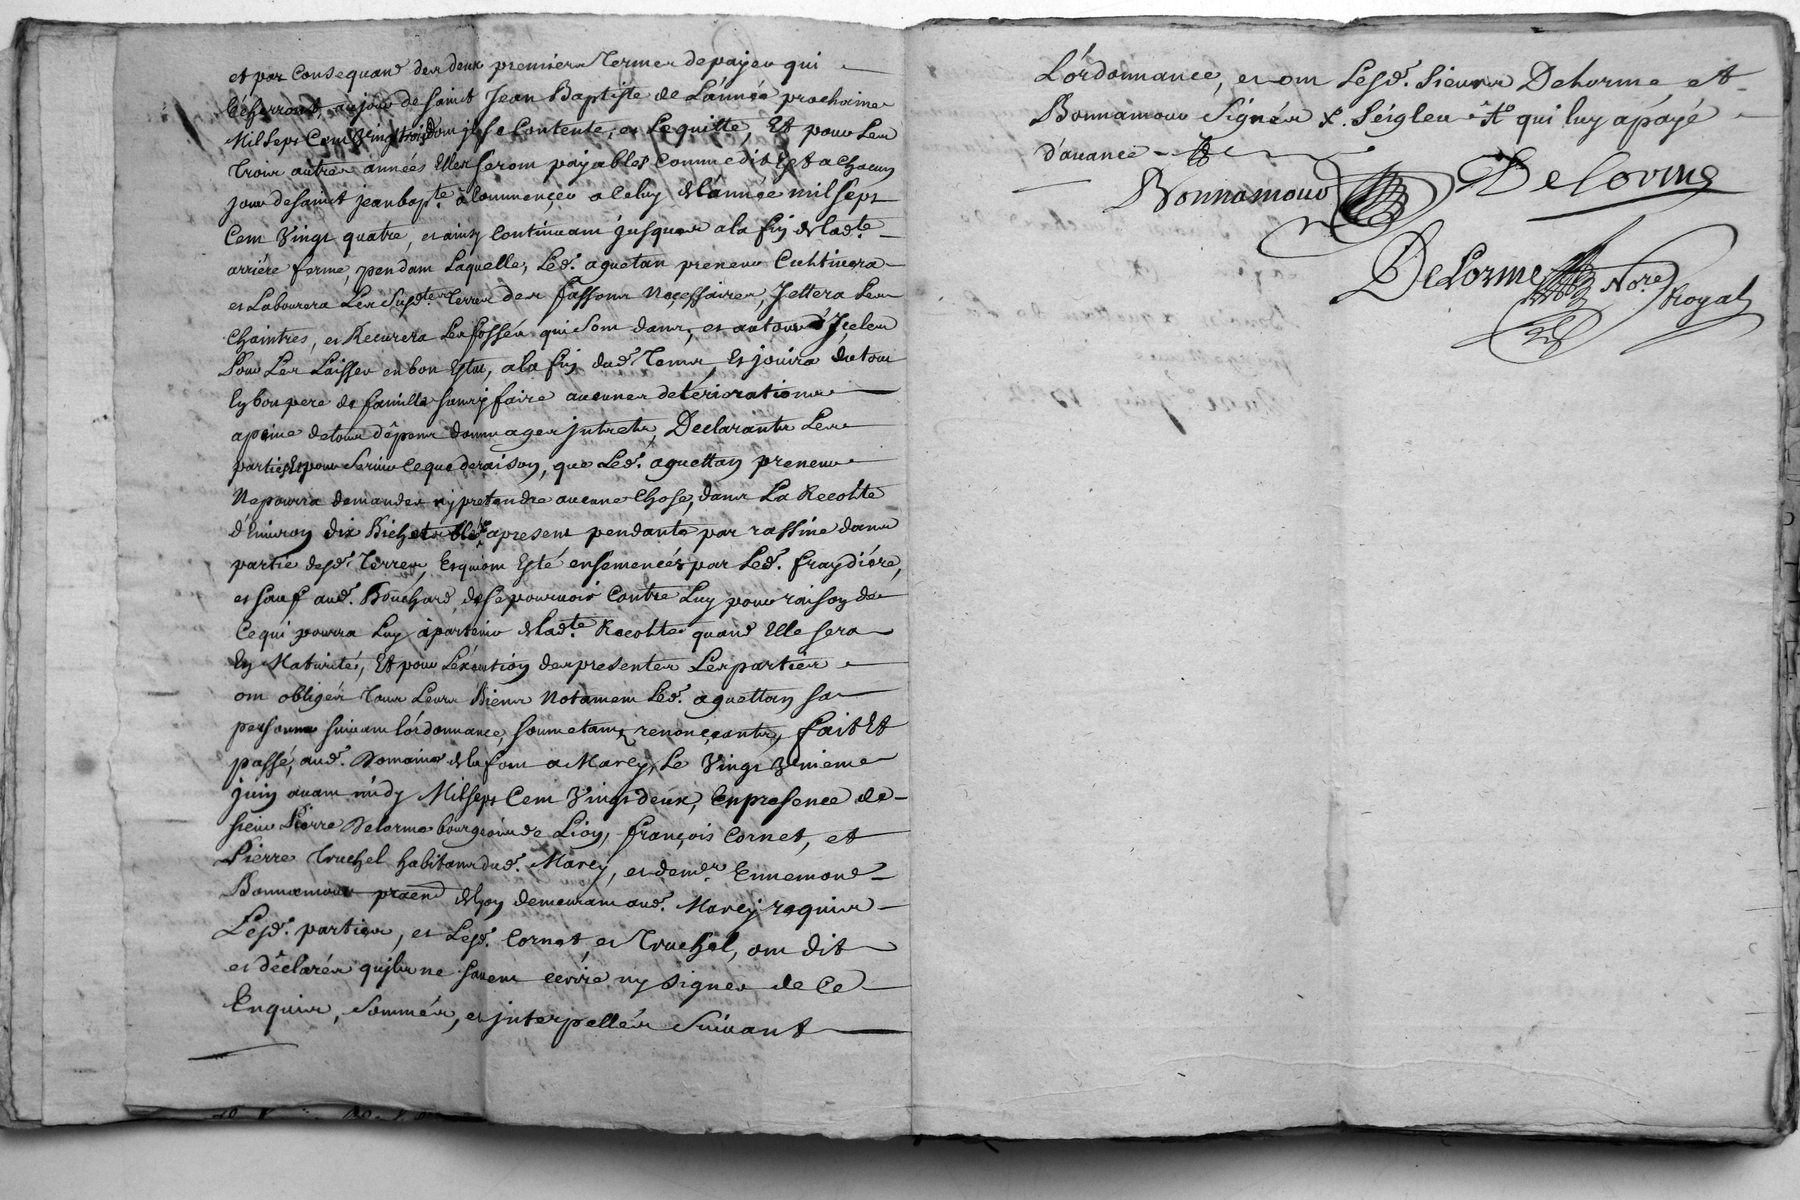 et par Consequand des deux premiers Termes depayer qui
écherront, aujour de saint Jean Baptiste de L'année prochaine
Milsept Cent Vingttrois dont il se Contente, et Lequitte, Et pour Les
Trois autres années Elles seront payables Comme dit Est a Chacun
jour desaint jean bapte. à Commençer a Celuy de l'année milsept
Cent Vingt quatre, et ainsy Continuant jusques a la fin de lade.
arriére ferme, pendant Laquelle, Led. aguetan preneur Cultivera
et Labourera Les Susdtes Terres des fassons Neçessaires, Jettera Les
Chaintres, et Recurera Les fossés qui sont dans, et autour d'Jçelles
Pour Les Laisser en bon Estat, a la fin dud. Tems, Et jouira du tout
En bon pere de famille sans y faire aucunes detériorations
apeine detous dêpens dommages jntrets, Declarants Les
parties Et pour Servir Ceque deraison, que Led. aguettan preneur
Nepourra demander ny pretendre aucune Chose, dans La Recolte
d'Environ dix Bichets bled apresent pendante par rassine dans
partie desd. Terres, Et qui ont Esté ensemencées par Led. fraydiére,
et sauf aud. Bouchard, de se pourvoir Contre Luy pour raison de
Cequi pourra Luy àpartenir de lade. Recolte quand Elle sera
En Maturité, Et pour L'éxecution des presentes Les parties
ont obligés Tous Leurs Biens Notament Led. aguettan sa
personne suivant l'ordonnance, soumetants, renonçeants, fait Et
passé, aud. Domaine de la font a Marcy, Le Vingt Vnieme
Juin avant midy Milsept Cent Vingt deux, En presence de
sieur Pierre Delorme bourgeois de Lion, françois Cornet, et
Pierre Truchel habitans dud. Marcy, et de mer. Ennemond
Bonnamour praend de lyon demeurant aud. Marcy requis
Lesd. parties, et Lesd. Cornet, et Truchel, ont dit
et dêclarés qu'jls ne savent écrire ny signer de Ce
Enquis, Sommés, et jnterpellés Suivant
L'ordonnance, et ont Lesd. Sieurs Delorme, et
Bonnamour Signés
qui luy apayé
d'avance
Bonnamour Delorme
DeLorme Nore Royal